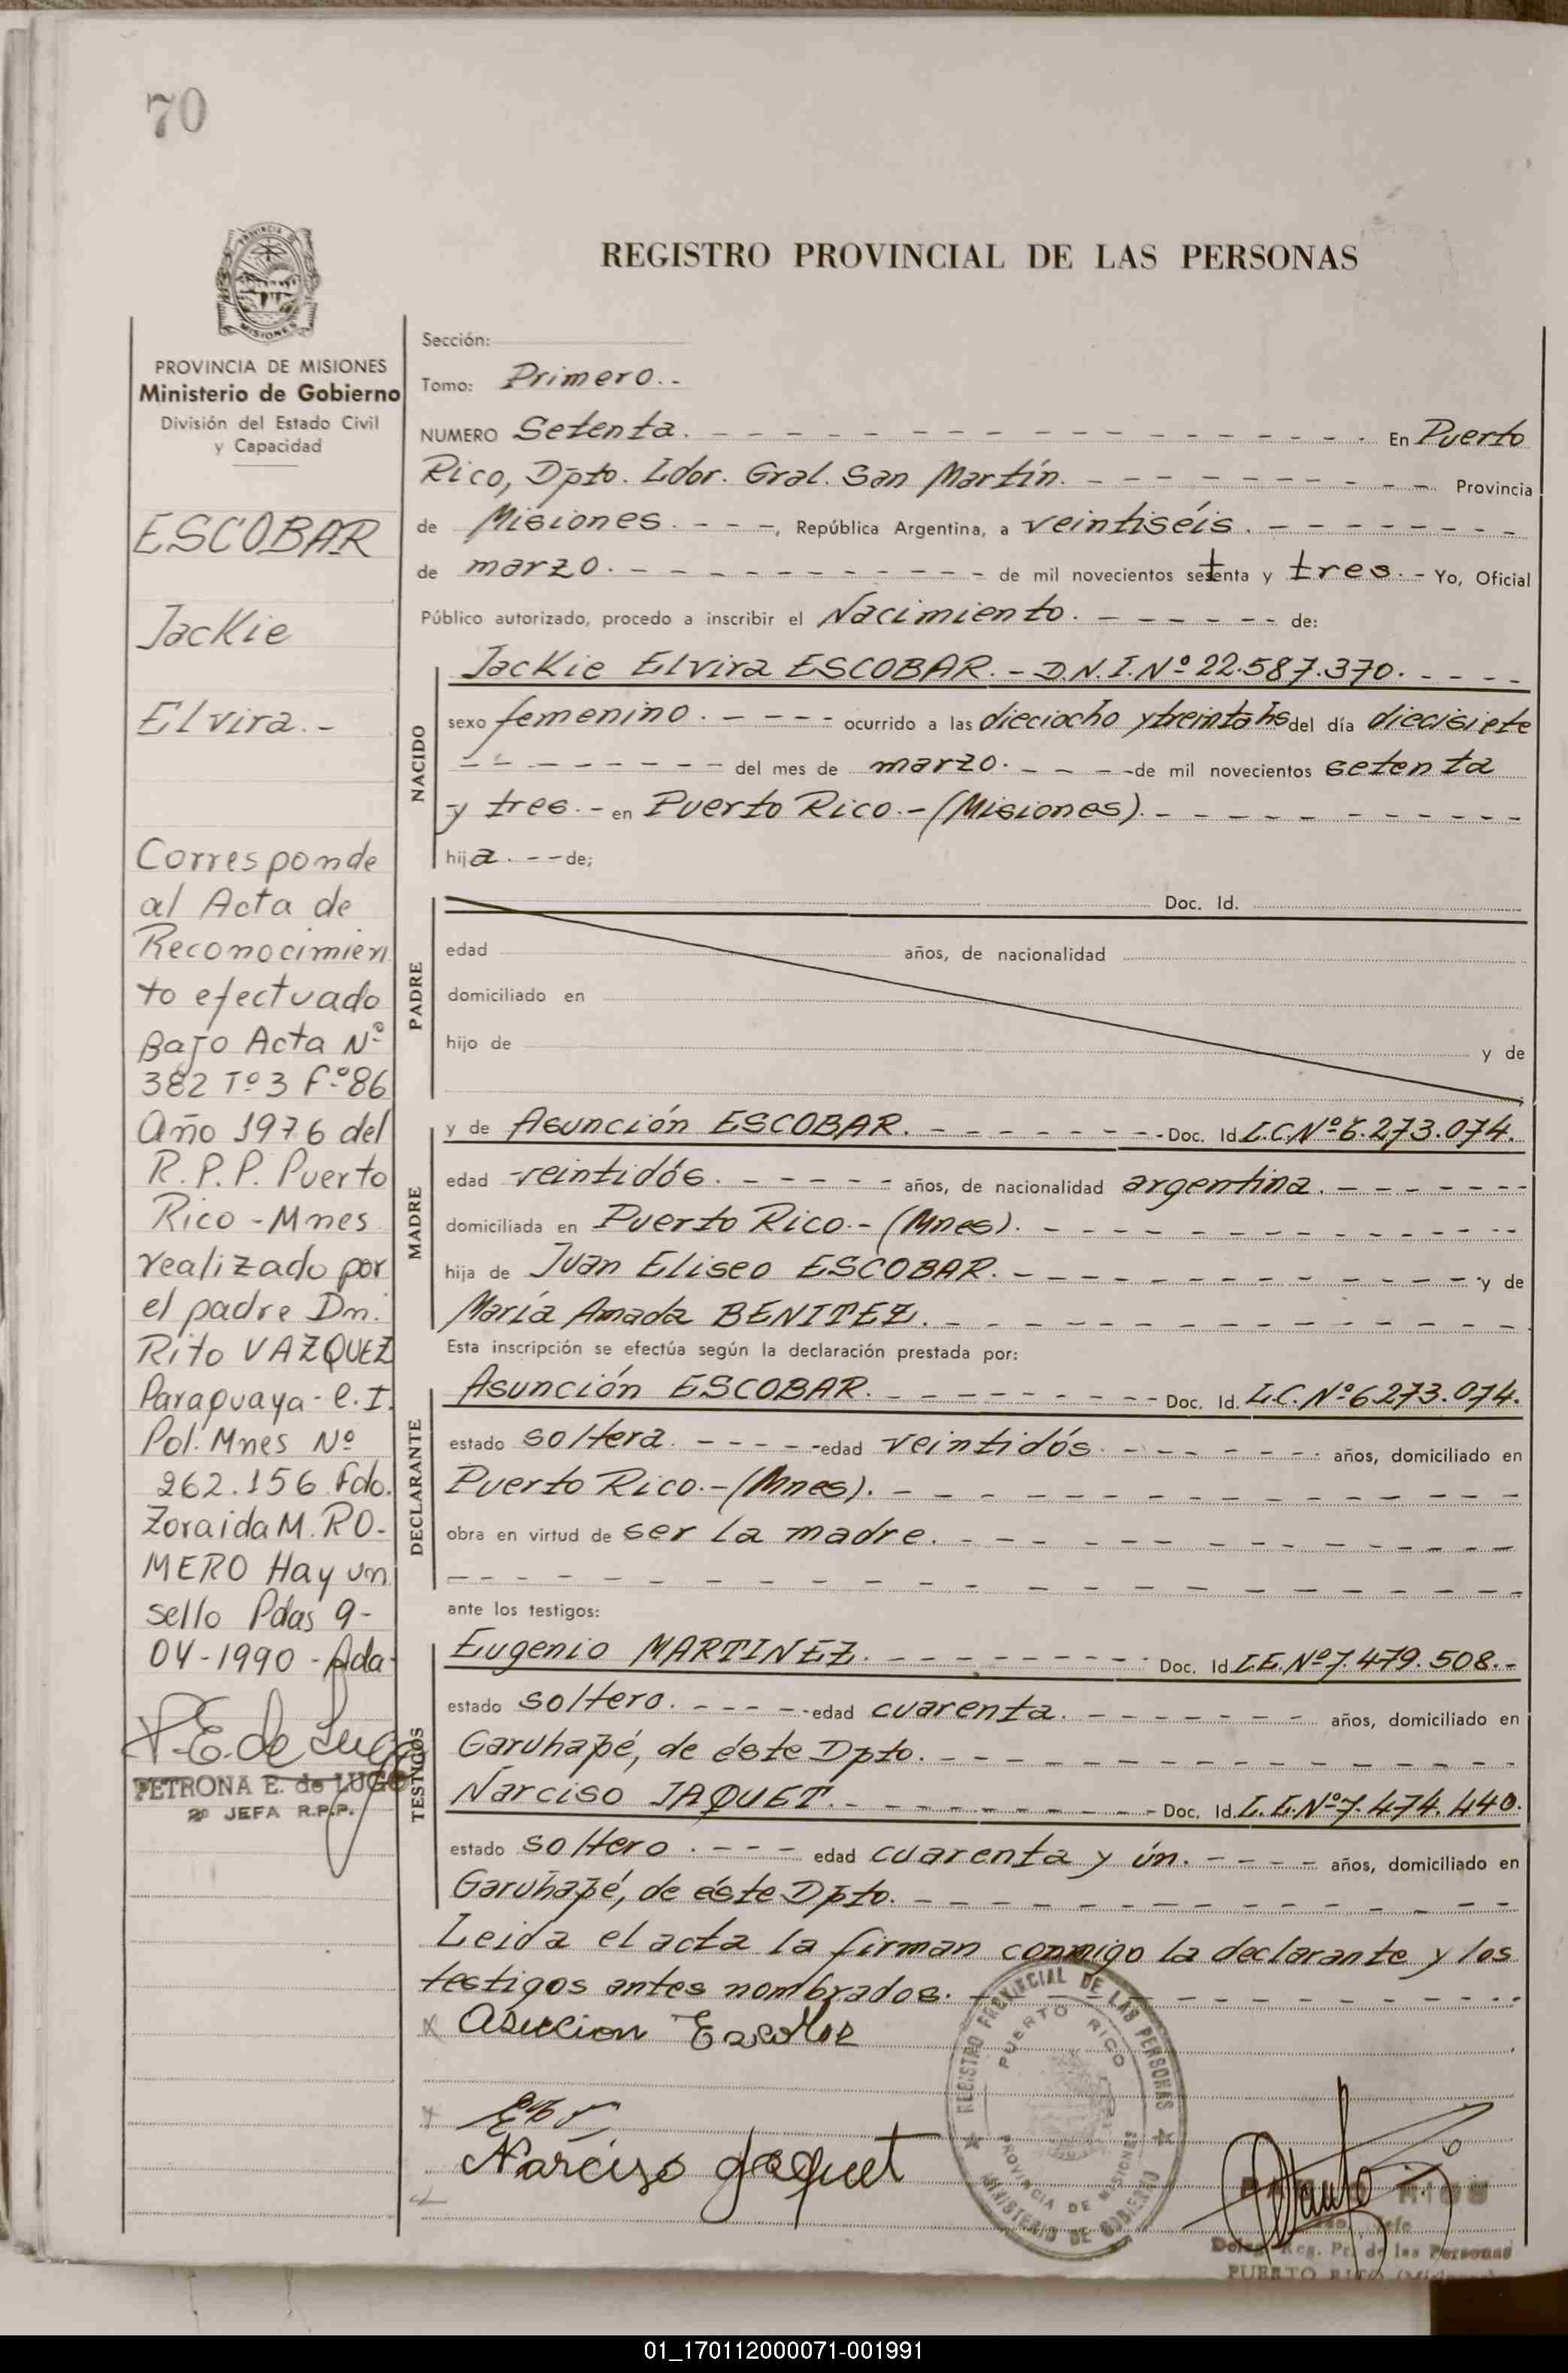 70
PROVINCIA DE
MISIONES
PROVINCIA DE MISIONES
Ministerio de Gobierno
División del Estado Civil
y Capacidad
ESCOBAR
Jackie
Elvira.-
Corresponde
al Acta de
Reconocimien
to efectuado
Bajo Acta Nº
382 Tº3 Fº86
Año 1976 del
R.P.P. Puerto
Rico - Mnes
realizado por
el padre Dn.
Rito VAZQUEZ
Paraguaya - C.I.
Pol. Mnes Nº
262.156 Fdo.
Zoraida M. RO-
MERO Hay un
sello Pdas 9-
04-1990 - Ada
P.E. de Lugo
PETRONA E. de LUGO
2º JEFA R.P.P.
REGISTRO PROVINCIAL DE LAS PERSONAS
Sección:
Tomo: Primero.-
NUMERO Setenta. - - - En Puerto
Rico, Dpto. Ldor. Gral. San Martín. - - - Provincia
de Misiones. - - -, República Argentina, a veintiséis. - - -
de marzo. - - - de mil novecientos setenta y tres. - Yo, Oficial
Público autorizado, procedo a inscribir el Nacimiento. - - - de:
NACIDO
Jackie Elvira ESCOBAR. - D.N.I. Nº 22.587.370. - - -
sexo femenino. - - - ocurrido a las dieciocho y treinta hs del día diecisiete
- - - del mes de marzo. - - - de mil novecientos setenta
y tres. - en Puerto Rico.- (Misiones). - - -
hija. - - de;
PADRE
Doc. Id.
edad años, de nacionalidad
domiciliado en
hijo de y de
MADRE
y de Asunción ESCOBAR. - - - Doc. Id. L.C. Nº 6.273.074.
edad veintidós. - - - años, de nacionalidad argentina. - - -
domiciliada en Puerto Rico.- (Mnes). - - -
hija de Juan Eliseo ESCOBAR. - - - y de
María Amada BENITEZ. - - -
Esta inscripción se efectúa según la declaración prestada por:
DECLARANTE
Asunción ESCOBAR. - - - Doc. Id. L.C. Nº 6.273.074.
estado soltera. - - - edad veintidós. - - - años, domiciliado en
Puerto Rico.- (Mnes). - - -
obra en virtud de ser la madre. - - -
ante los testigos:
TESTIGOS
Eugenio MARTINEZ. - - - Doc. Id. L.E. Nº 7.479.508.-
estado soltero. - - - edad cuarenta. - - - años, domiciliado en
Garuhapé, de éste Dpto. - - -
Narciso JAQUET. - - - Doc. Id. L.E. Nº 7.474.440.
estado soltero. - - - edad cuarenta y ún. - - - años, domiciliado en
Garuhapé, de éste Dpto. - - -
Leída el acta la firman conmigo la declarante y los
testigos antes nombrados. - - -
Asuccion Escobar
Narciso Jaquet
REGISTRO PROVINCIAL DE LAS PERSONAS
PUERTO RICO
PROVINCIA DE MISIONES
MINISTERIO DE GOBIERNO
Jefe
Deleg. Reg. Pr. de las Personas
PUERTO RICO (Misiones)
01_170112000071-001991